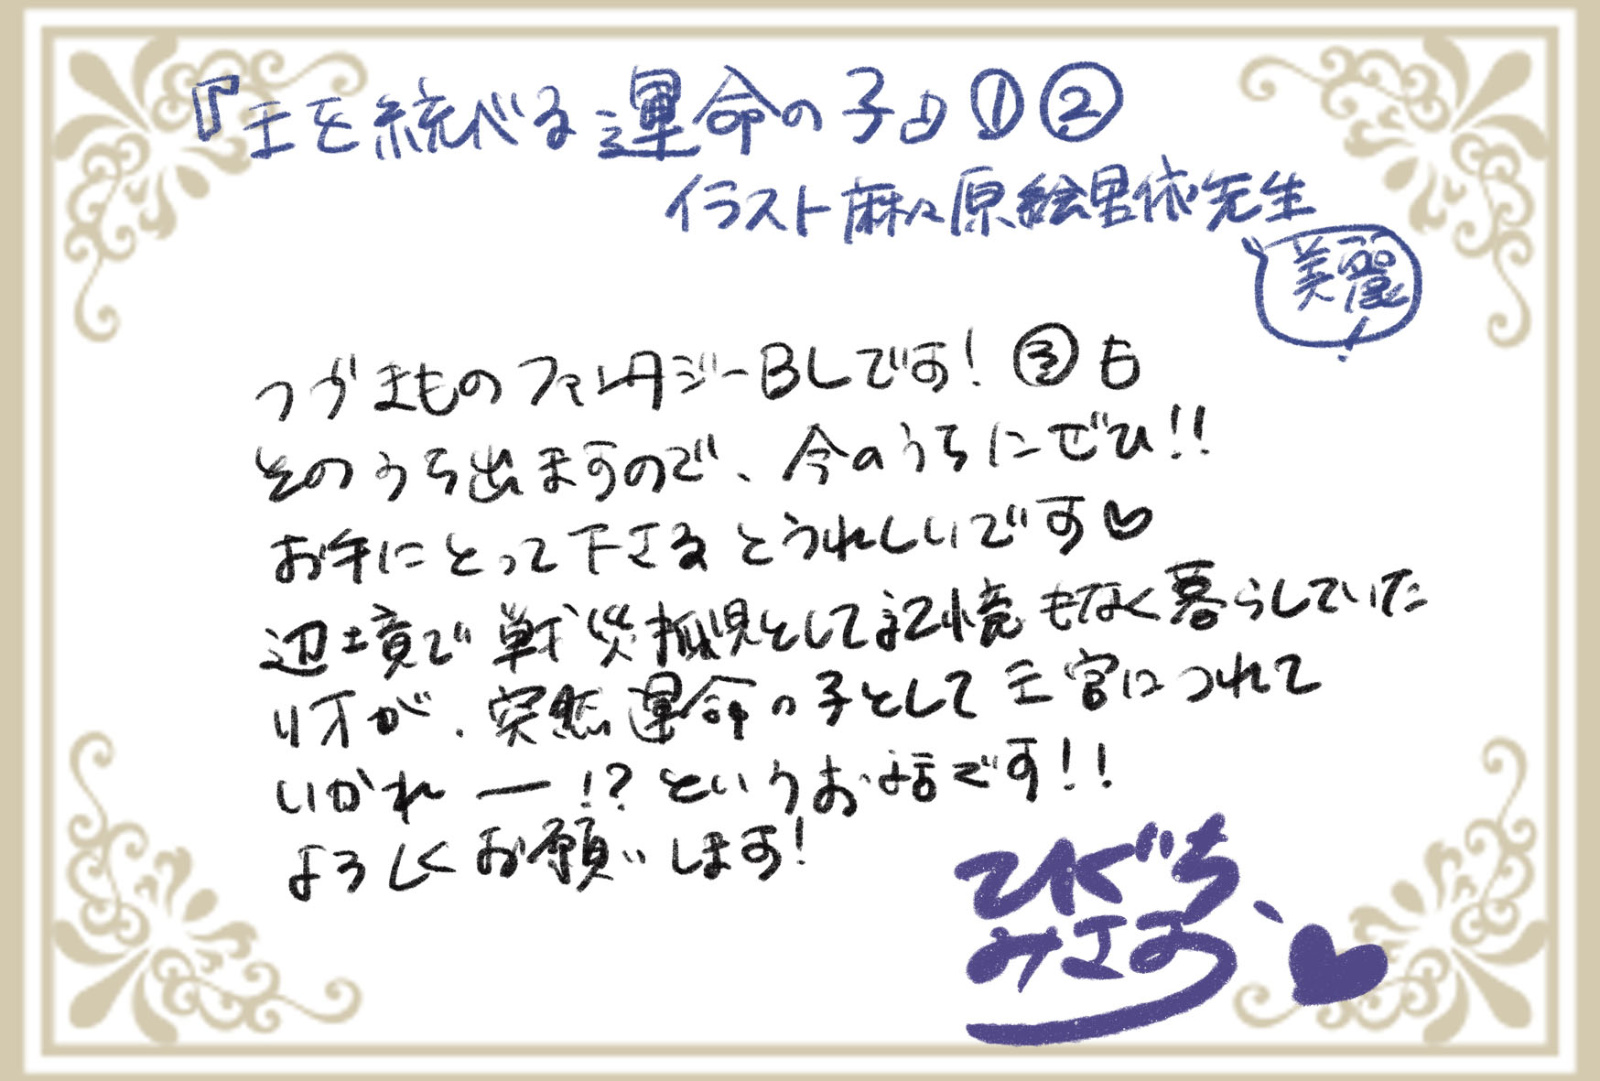 『王を統べる運命の子』①②
イラスト麻々原絵里依先生
美麗!
つづきものファンタジーBLです! ③も
そのうち出ますので、今のうちにぜひ!!
お手にとって下さるとうれしいです♥
辺境で戦災孤児として記憶もなく暮らしていた
リオが、突然運命の子として王宮につれて
いかれ ー!?というお話です!!
よろしくお願いします!
ひぐち
みさお
♥